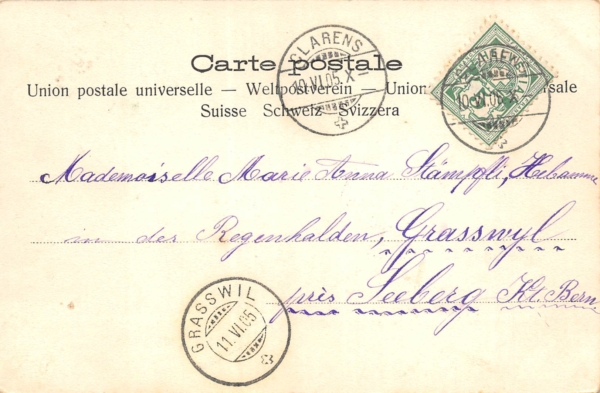 Carte postale
Union postale universelle — Weltpostverein — Union sale
Suisse Schweiz Svizzera
CLARENS
10.VI.05.X
10.VI.05
Mademoiselle Marie Anna Stämpfli, Hebamme
in der Regenhalden, Grasswyl
près Seeberg Kt. Bern
GRASSWIL
11.VI.05